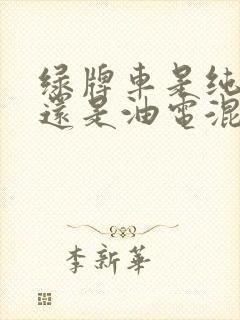 绿牌車是纯
還是油電混
李新華